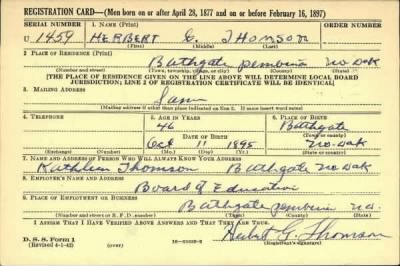 REGISTRATION CARD—(Men born on or after April 28, 1877 and on or before February 16, 1897)
SERIAL NUMBER 1. NAME (Print) ORDER NUMBER
U 1459 HERBERT G. THOMSON
(First) (Middle) (Last)
2. PLACE OF RESIDENCE (Print)
Bathgate Pembina No Dak
(Number and street) (Town, township, village, or city) (County) (State)
[THE PLACE OF RESIDENCE GIVEN ON THE LINE ABOVE WILL DETERMINE LOCAL BOARD
JURISDICTION; LINE 2 OF REGISTRATION CERTIFICATE WILL BE IDENTICAL]
3. MAILING ADDRESS
Same
[Mailing address if other than place indicated on line 2. If same insert word same]
4. TELEPHONE 5. AGE IN YEARS 6. PLACE OF BIRTH
46 Bathgate
DATE OF BIRTH (Town or county)
Oct 11 1895 No Dak
(Exchange) (Number) (Mo.) (Day) (Yr.) (State or country)
7. NAME AND ADDRESS OF PERSON WHO WILL ALWAYS KNOW YOUR ADDRESS
Kathleen Thomson Bathgate No Dak
8. EMPLOYER'S NAME AND ADDRESS
Board of Education
9. PLACE OF EMPLOYMENT OR BUSINESS
Bathgate Pembina N.D.
(Number and street or R. F. D. number) (Town) (County) (State)
I AFFIRM THAT I HAVE VERIFIED ABOVE ANSWERS AND THAT THEY ARE TRUE.
D. S. S. Form 1
(Revised 4-1-42) (over) Herbert G. Thomson
(Registrant's signature)